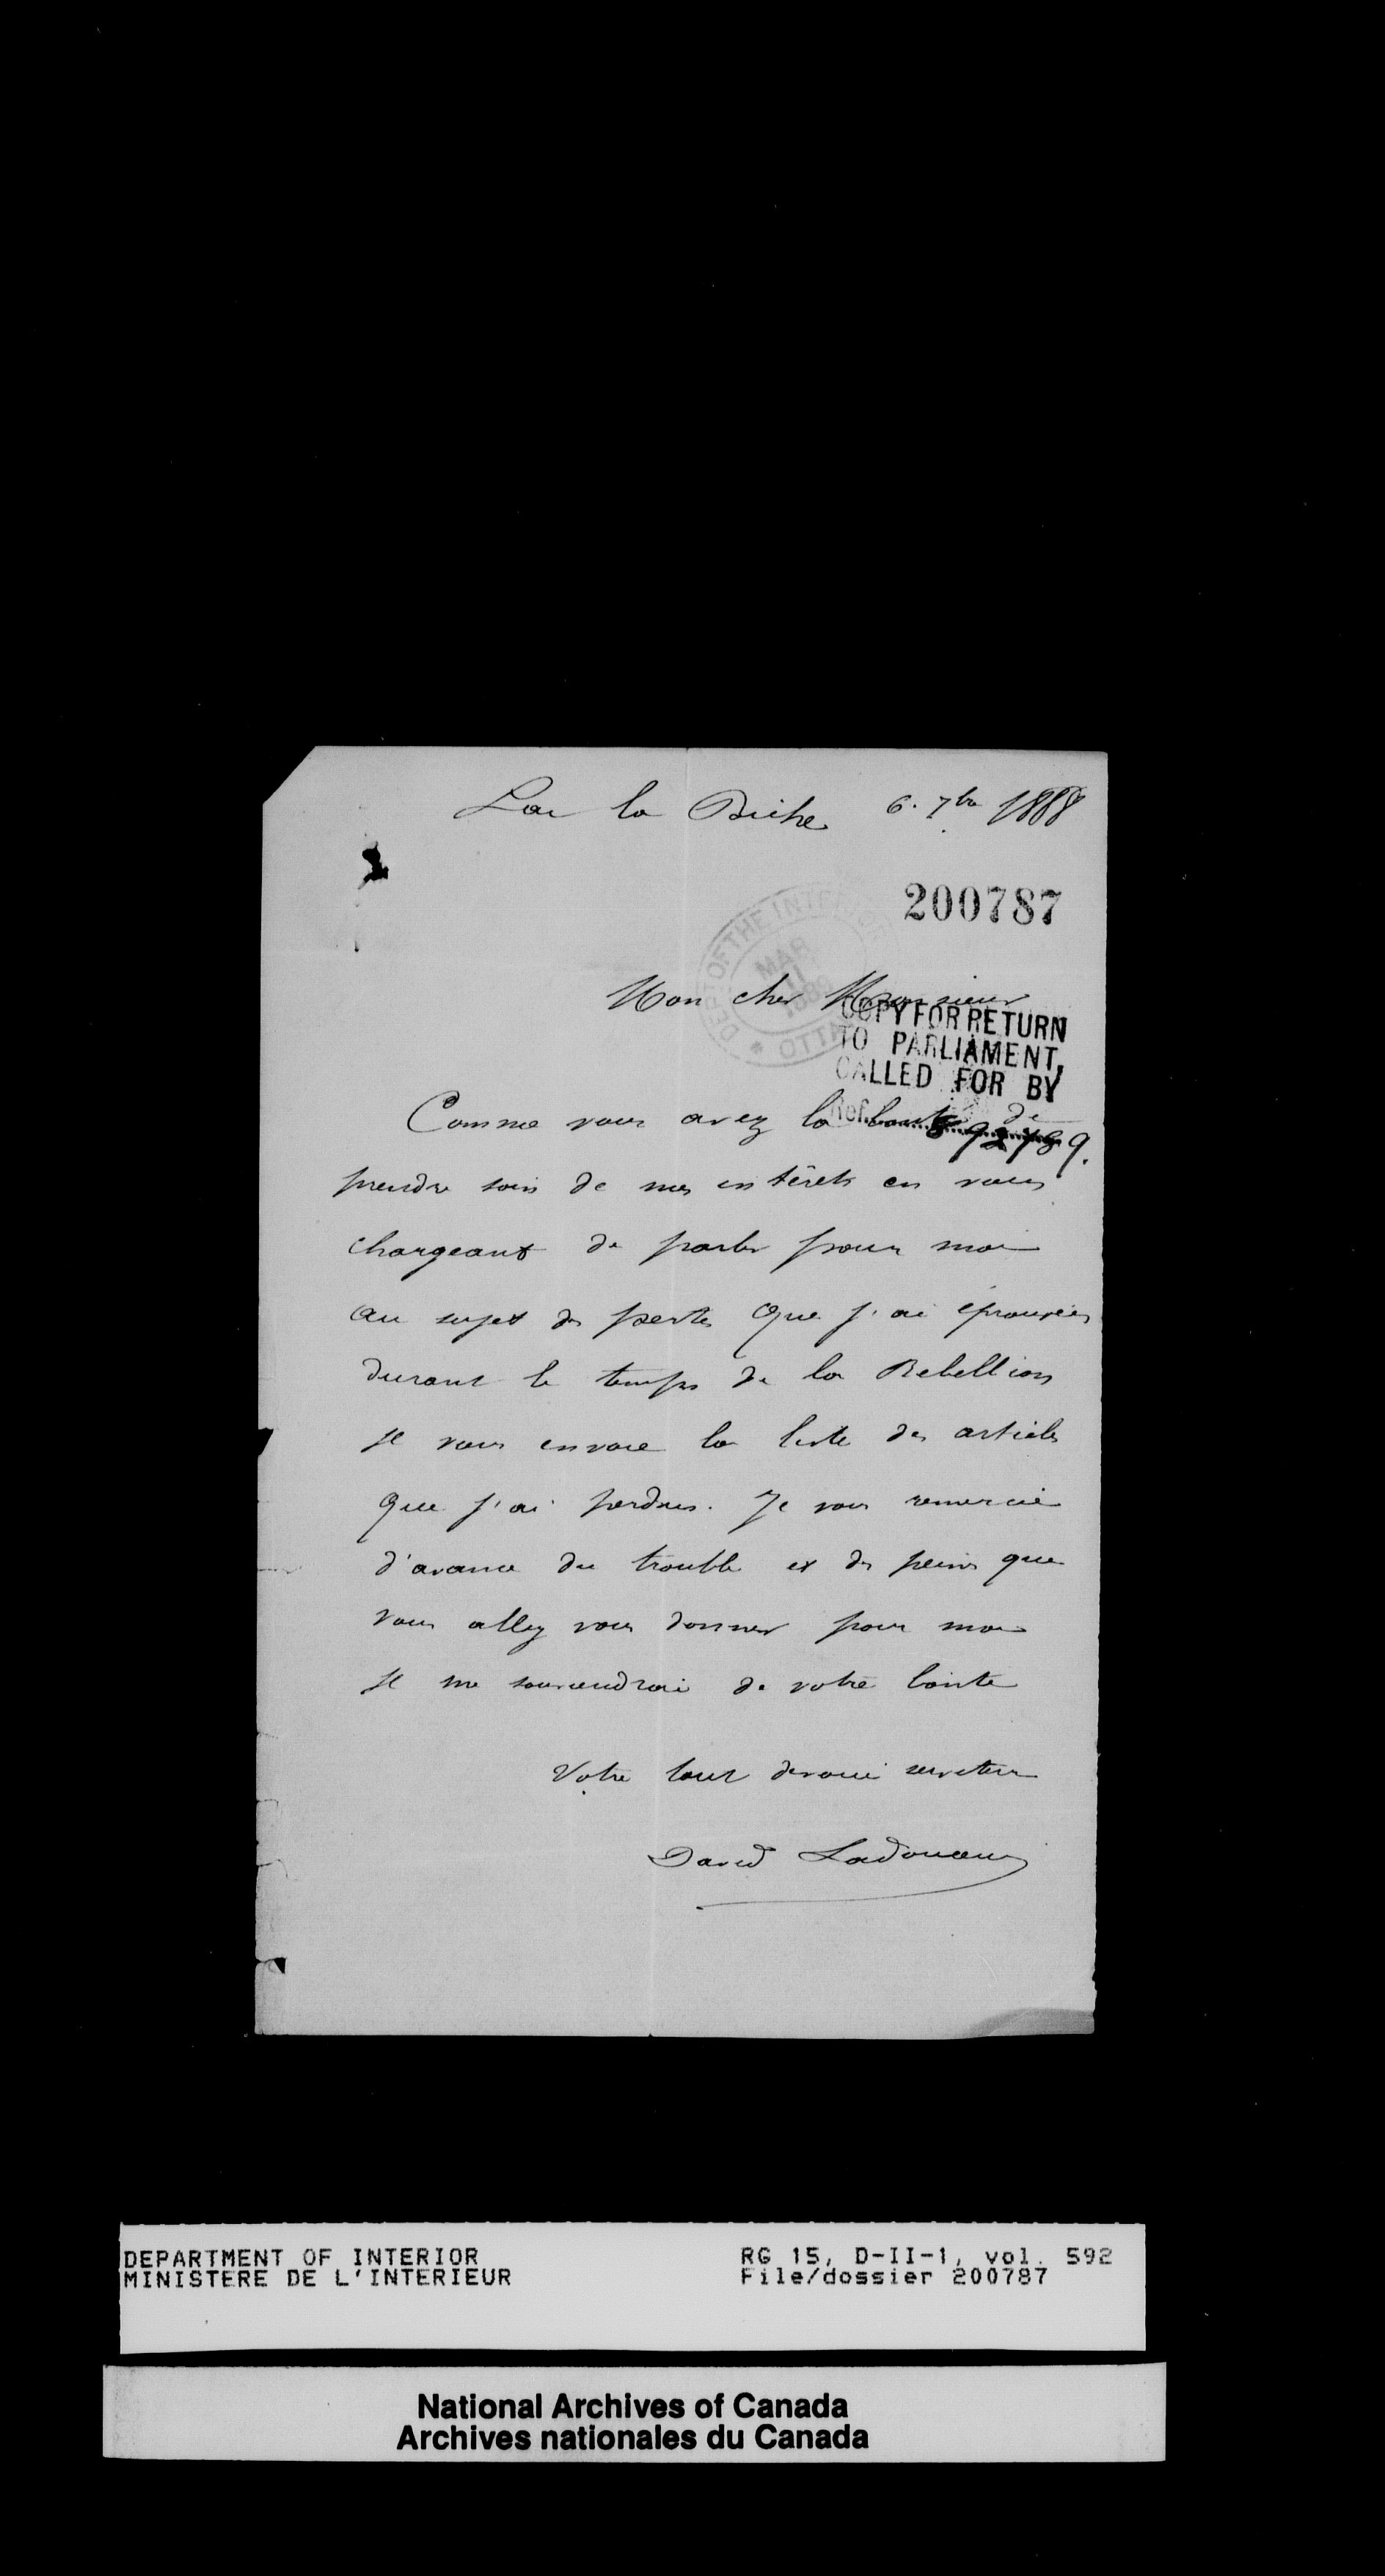 Lac la Biche 6. 7bre 1888
200787
DEPT OF THE INTERIOR
MAR
OTTAWA
Mon cher Monsieur
COPY FOR RETURN
TO PARLIAMENT,
CALLED FOR BY
Ref. 192789.
Comme vous avez la bonté de
prendre soin de mes intérêts en vous
chargeant de parler pour moi
au sujet des pertes que j'ai éprouvées
durant le temps de la Rebellion
je vous envoie la liste des articles
que j'ai perdus. Je vous remercie
d'avance du trouble et des peines que
vous allez vous donner pour moi
je me souviendrai de votre bonté
Votre tout dévoué serviteur
David Ladouceur
DEPARTMENT OF INTERIOR
MINISTERE DE L'INTERIEUR
RG 15, D-II-1, vol. 592
File/dossier 200787
National Archives of Canada
Archives nationales du Canada